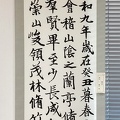 和九年歲在癸丑暮春
會稽山陰之蘭亭脩
羣賢畢至少長咸
崇山峻領茂林脩